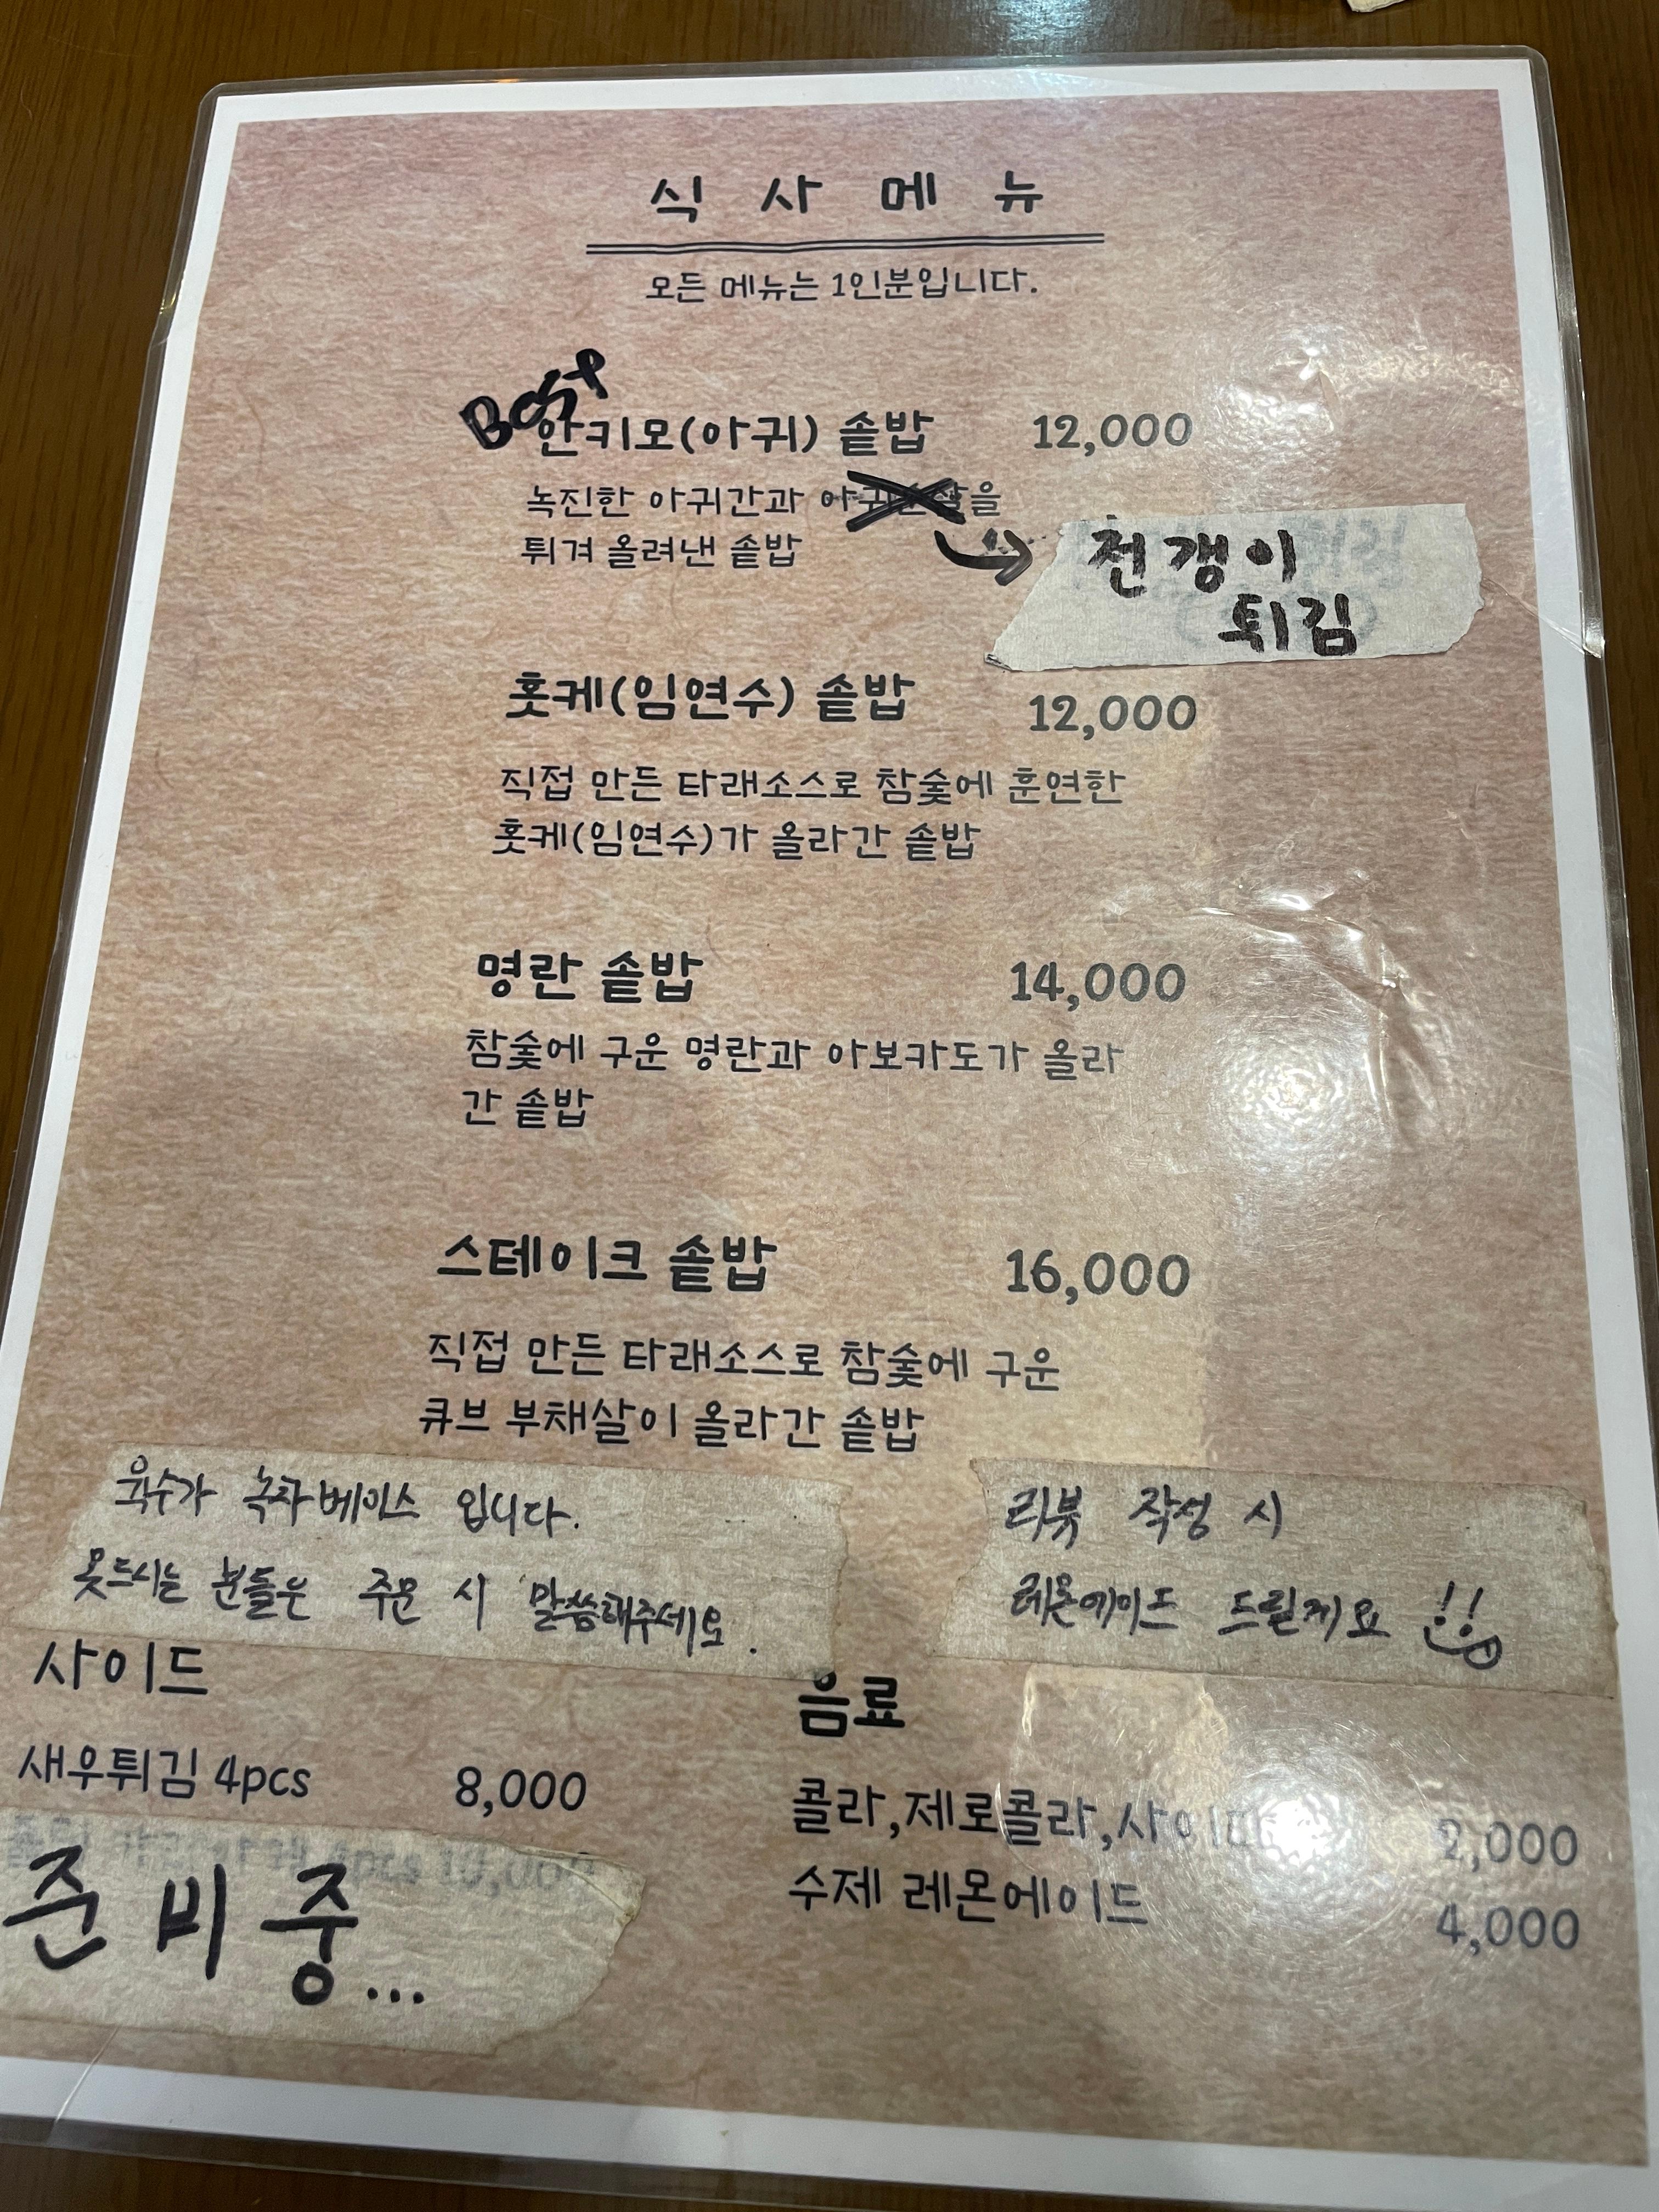 식사메뉴
모든 메뉴는 1인분입니다.
Best
안키모(아귀) 솥밥 12,000
녹진한 아귀간과 아귀순살을
튀겨 올려낸 솥밥
전갱이
튀김
홋케(임연수) 솥밥 12,000
직접 만든 타래소스로 참숯에 훈연한
홋케(임연수)가 올라간 솥밥
명란 솥밥 14,000
참숯에 구운 명란과 아보카도가 올라
간 솥밥
스테이크 솥밥 16,000
직접 만든 타래소스로 참숯에 구운
큐브 부채살이 올라간 솥밥
육수가 녹차베이스 입니다.
못드시는 분들은 주문 시 말씀해주세요.
리뷰 작성 시
레몬에이드 드릴게요 !!
사이드
새우튀김 4pcs 8,000
준비중...
음료
콜라,제로콜라,사이다 2,000
수제 레몬에이드 4,000